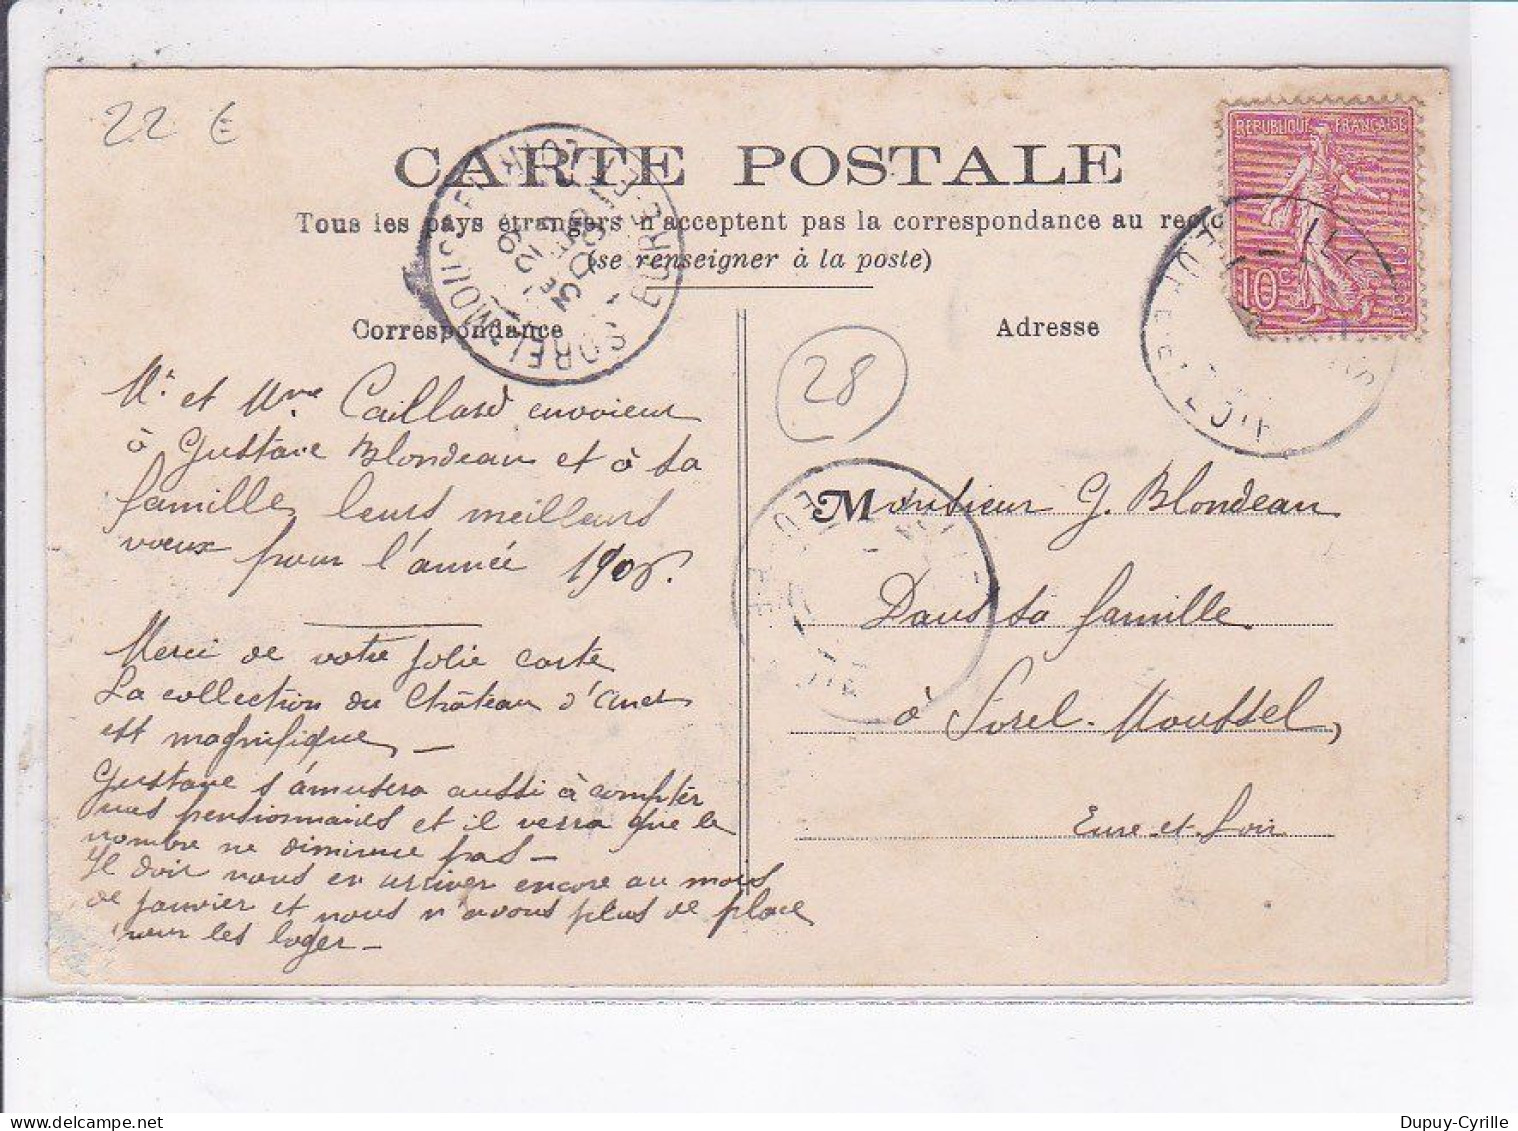 22 €
CARTE POSTALE
Tous les pays étrangers n'acceptent pas la correspondance au recto
(se renseigner à la poste)
Correspondance
Adresse
REPUBLIQUE FRANÇAISE
10c
POSTES
SOREL-MOUSSEL
EURE-ET-LOIR
28
Mr et Mme Caillard envoient
à Gustave Blondeau et à sa
famille, leurs meilleurs
voeux pour l'année 1906.
Merci de votre jolie carte
La collection du Château d'Anet
est magnifique, —
Gustave s'amusera aussi à compter
nos pensionnaires et il verra que le
nombre ne diminue pas —
Il doit nous en arriver encore au mois
de janvier et nous n'avons plus de place
pour les loger —
Monsieur G. Blondeau
Dans sa famille
à Sorel-Moussel,
Eure-et-Loir
Dupuy-Cyrille